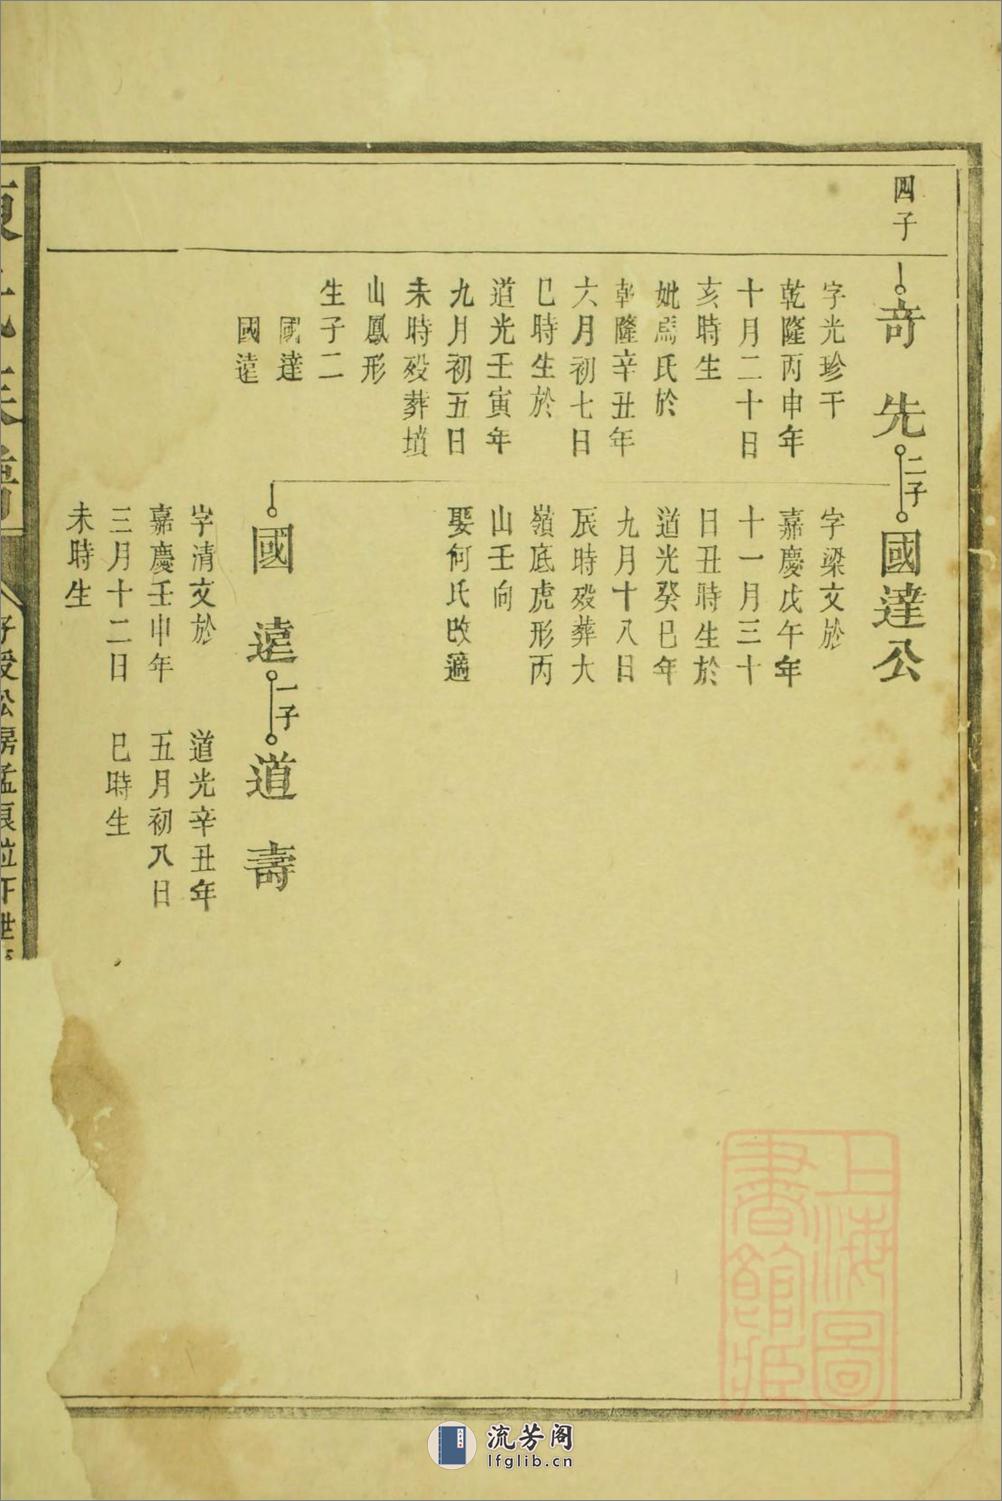 四子
奇先
字光珍于
乾隆丙申年
十月二十日
亥時生
妣馬氏於
乾隆辛丑年
六月初七日
巳時生於
道光壬寅年
九月初五日
未時歿葬墳
山鳳形
生子二
國達
國遠
二子
國達公
字梁文於
嘉慶戊午年
十一月三十
日丑時生於
道光癸巳年
九月十八日
辰時歿葬大
嶺底虎形丙
山壬向
娶何氏改適
國遠
字清文於
嘉慶壬申年
三月十二日
未時生
一子
道壽
道光辛丑年
五月初八日
巳時生
上海圖
書館藏
流芳阁
lfglib.cn